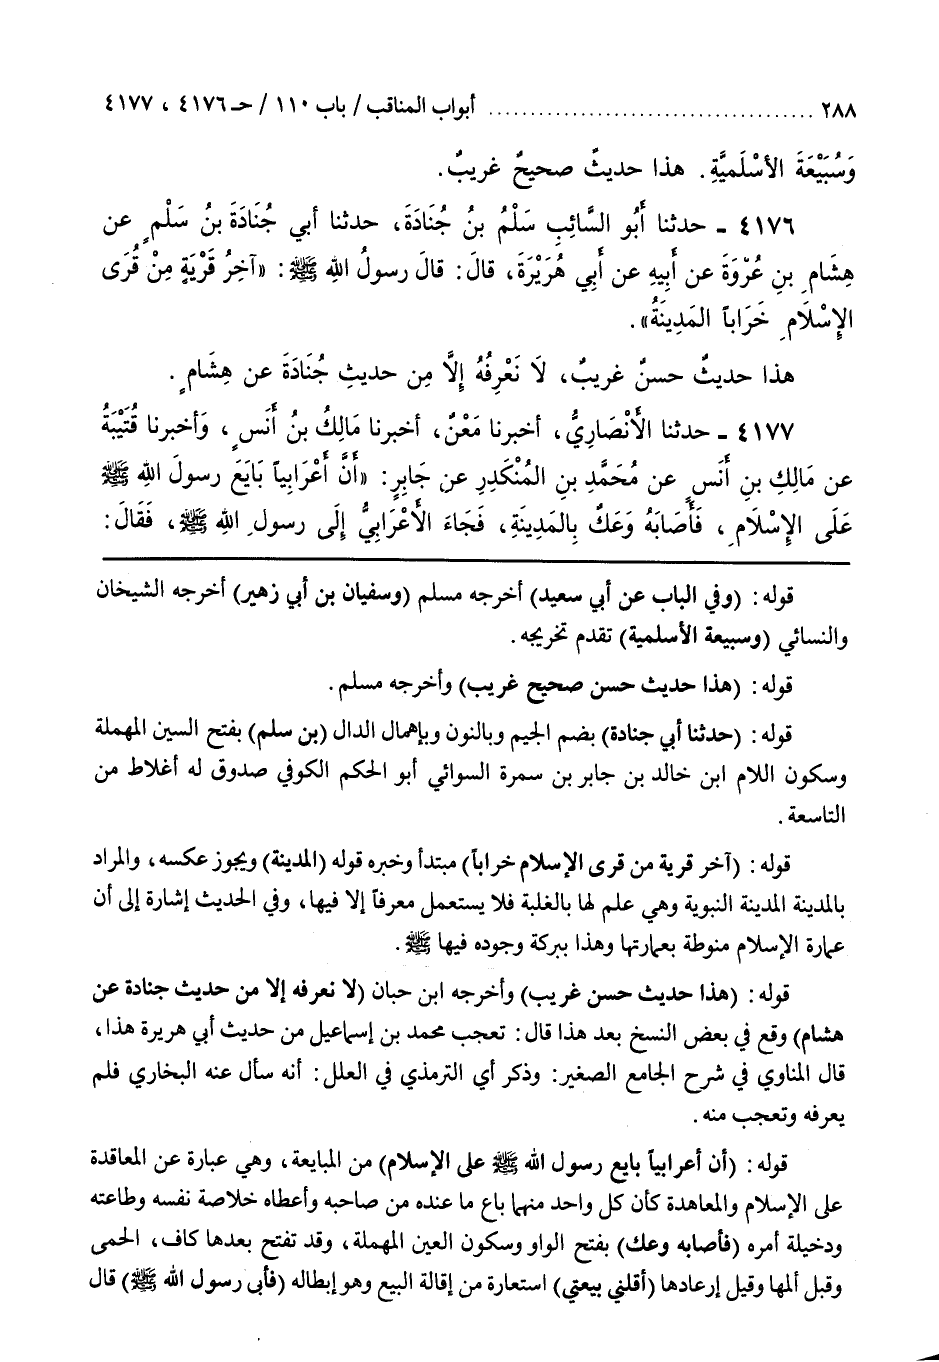 ٢٨٨ ........................................ أبواب المناقب / باب ١١٠ / حـ ٤١٧٦ ، ٤١٧٧
وَسُبَيْعَةَ الأسْلَمِيَّةِ. هذا حديثٌ صحيحٌ غريبٌ.
٤١٧٦ ـ حدثنا أَبُو السَّائِبِ سَلْمُ بنُ جُنَادَةَ، حدثنا أبي جُنَادَةَ بنُ سَلْمٍ عن
هِشَامِ بنِ عُرْوَةَ عن أَبِيهِ عن أَبِي هُرَيْرَةَ، قالَ: قالَ رسولُ اللهِ ﷺ: «آخِرُ قَرْيَةٍ مِنْ قُرَى
الإِسْلَامِ خَرَاباً المَدِينَةُ».
هذا حديثٌ حسنٌ غريبٌ، لَا نَعْرِفُهُ إِلَّا مِن حديثِ جُنَادَةَ عن هِشَامٍ.
٤١٧٧ ـ حدثنا الأَنْصَارِيُّ، أخبرنا مَعْنٌ، أخبرنا مَالِكُ بنُ أَنَسٍ، وَأخبرنا قُتَيْبَةُ
عن مَالِكِ بنِ أَنَسٍ عن مُحَمَّدِ بنِ المُنْكَدِرِ عن جَابِرٍ: «أَنَّ أَعْرَابِياً بَايَعَ رسولَ اللهِ ﷺ
عَلَى الإِسْلَامِ، فَأَصَابَهُ وَعَكٌ بِالمَدِينَةِ، فَجَاءَ الأَعْرَابِيُّ إِلَى رسولِ اللهِ ﷺ، فَقَالَ:
قوله: (وفي الباب عن أبي سعيد) أخرجه مسلم (وسفيان بن أبي زهير) أخرجه الشيخان
والنسائي (وسبيعة الأسلمية) تقدم تخريجه.
قوله: (هذا حديث حسن صحيح غريب) وأخرجه مسلم.
قوله: (حدثنا أبي جنادة) بضم الجيم وبالنون وبإهمال الدال (بن سلم) بفتح السين المهملة
وسكون اللام ابن خالد بن جابر بن سمرة السوائي أبو الحكم الكوفي صدوق له أغلاط من
التاسعة.
قوله: (آخر قرية من قرى الإسلام خراباً) مبتدأ وخبره قوله (المدينة) ويجوز عكسه، والمراد
بالمدينة المدينة النبوية وهي علم لها بالغلبة فلا يستعمل معرفاً إلا فيها، وفي الحديث إشارة إلى أن
عمارة الإسلام منوطة بعمارتها وهذا ببركة وجوده فيها ﷺ.
قوله: (هذا حديث حسن غريب) وأخرجه ابن حبان (لا نعرفه إلا من حديث جنادة عن
هشام) وقع في بعض النسخ بعد هذا قال: تعجب محمد بن إسماعيل من حديث أبي هريرة هذا،
قال المناوي في شرح الجامع الصغير: وذكر أي الترمذي في العلل: أنه سأل عنه البخاري فلم
يعرفه وتعجب منه.
قوله: (أن أعرابياً بايع رسول الله ﷺ على الإسلام) من المبايعة، وهي عبارة عن المعاقدة
على الإسلام والمعاهدة كأن كل واحد منهما باع ما عنده من صاحبه وأعطاه خلاصة نفسه وطاعته
ودخيلة أمره (فأصابه وعك) بفتح الواو وسكون العين المهملة، وقد تفتح بعدها كاف، الحمى
وقبل ألمها وقيل إرعادها (أقلني بيعتي) استعارة من إقالة البيع وهو إبطاله (فأبى رسول الله ﷺ) قال